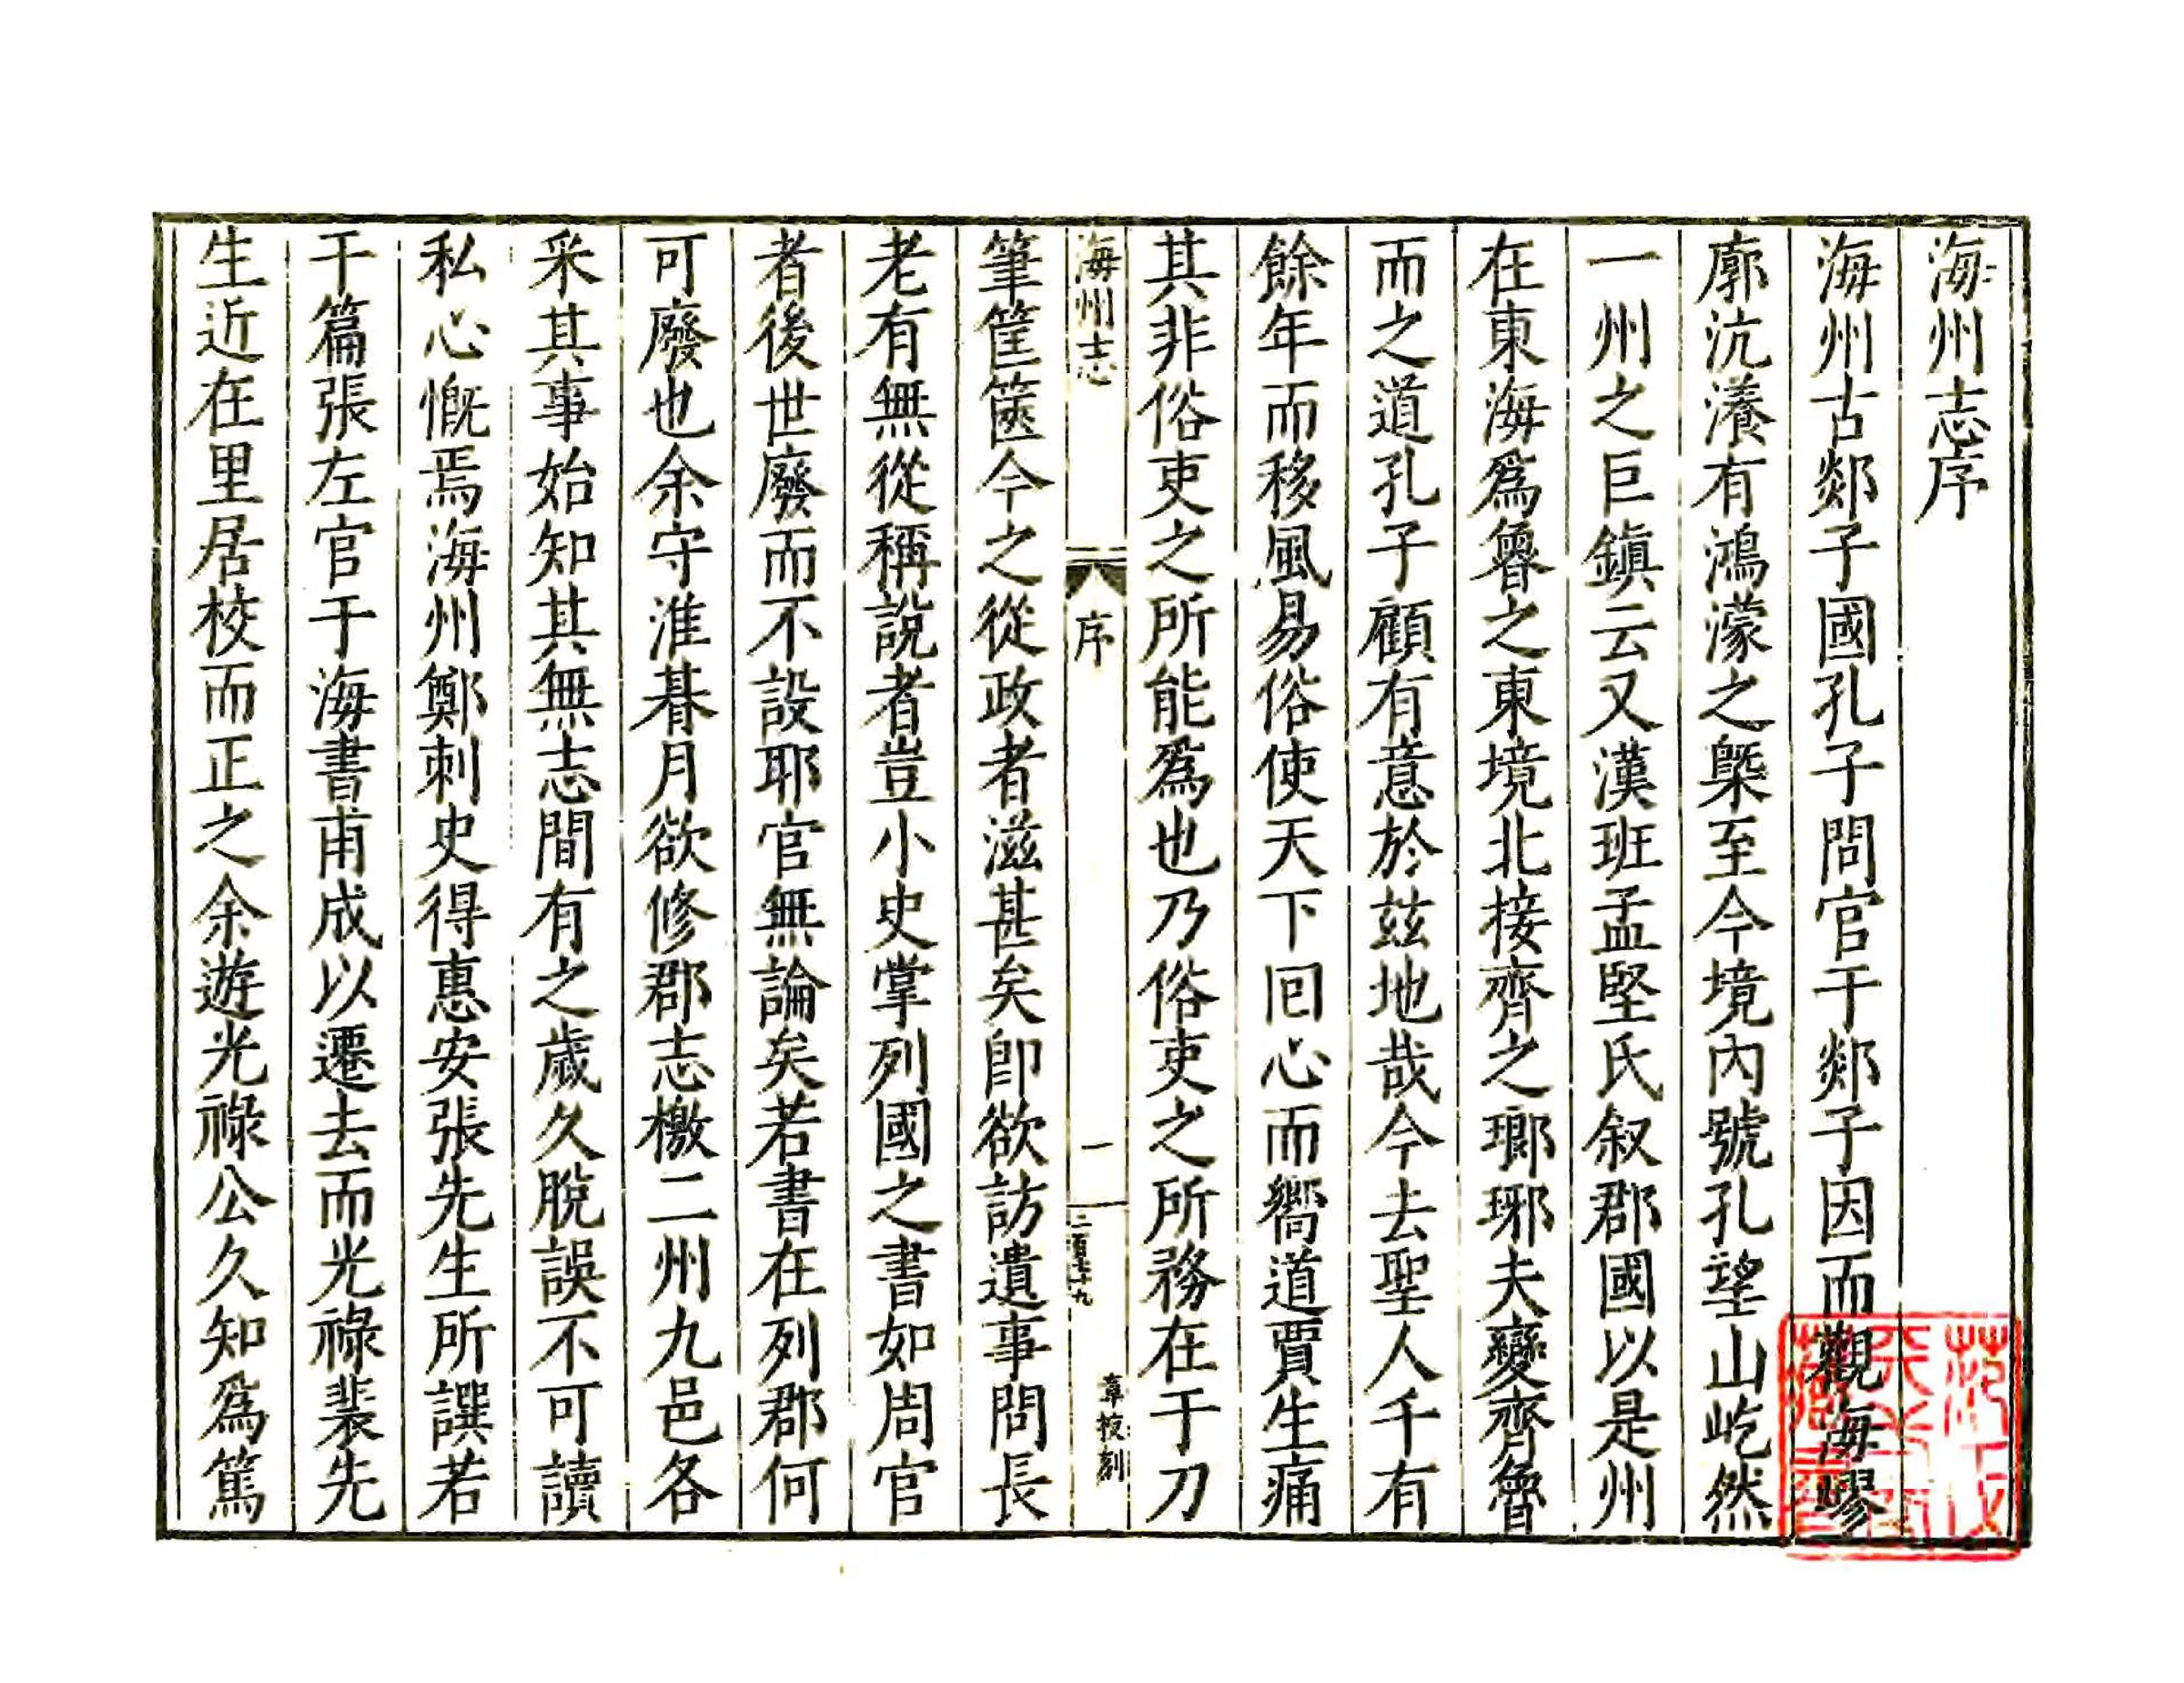 海州志序
海州古郯子國孔子問官于郯子因而觀海嵺
廓沆瀁有鴻濛之槩至今境內號孔望山屹然
一州之巨鎮云又漢班孟堅氏叙郡國以是州
在東海爲魯之東境北接齊之瑯琊夫變齊魯
而之道孔子顧有意於兹地哉今去聖人千有
餘年而移風易俗使天下囘心而嚮道賈生痛
其非俗吏之所能爲也乃俗吏之所務在于刀
海州志
序
一
章杖刻
筆筐篋今之從政者滋甚矣卽欲訪遺事問長
老有無從稱說者豈小史掌列國之書如周官
者後世廢而不設耶官無論矣若書在列郡何
可廢也余守淮朞月欲修郡志檄二州九邑各
采其事始知其無志間有之歲久脫誤不可讀
私心慨焉海州鄭刺史得惠安張先生所譔若
干篇張左官于海書甫成以遷去而光祿裴先
生近在里居校而正之余遊光祿公久知爲篤